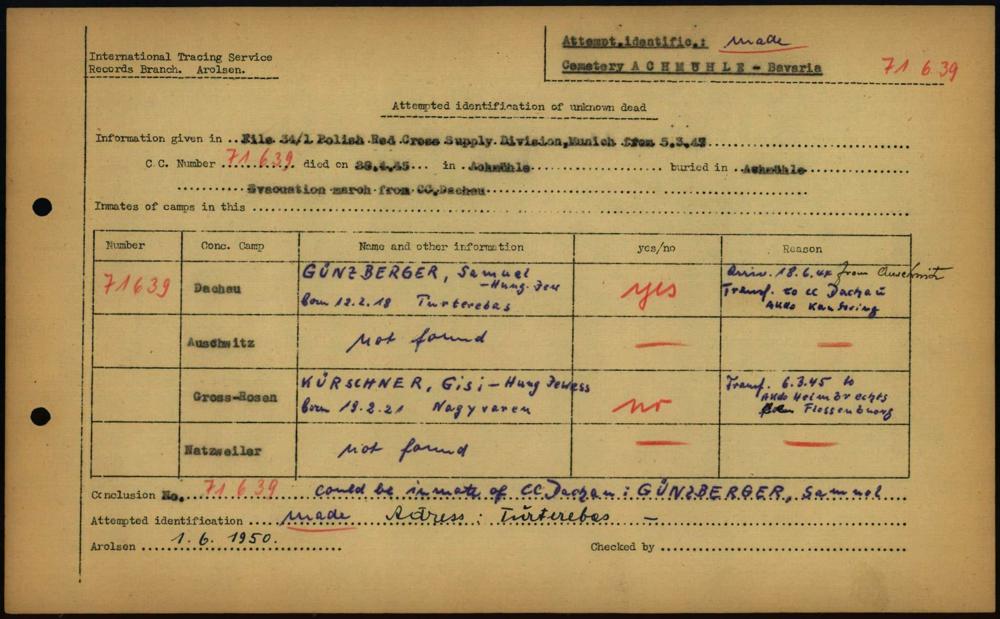 Attempt.identific.: made
International Tracing Service
Records Branch. Arolsen.
Cemetery ACHMÜHLE - Bavaria
71639
Attempted identification of unknown dead
Information given in ..File 34/1 Polish Red Cross Supply Division, Munich from 5.3.47
C.C. Number 71639 died on 4.45 in Achmühle buried in Achmühle
Evacuation march from CC.Dachau
Inmates of camps in this
Number Conc. Camp Name and other information yes/no Reason
71639 Dachau GÜNZBERGER, Samuel yes Arriv. 18.6.44 from Auschwitz
- Hung. Jew Transf. to CC Dachau
born 12.2.18 Turterebas AKdo Kaufering
Auschwitz not found — —
Gross-Rosen KÜRSCHNER, Gisi - Hung Jewess no Transf. 6.3.45 to
born 19.2.21 Nagyvaren AKdo Helmbrechts
Flossenbuerg
Natzweiler not found — —
Conclusion No. 71639 could be inmate of CC Dachau: GÜNZBERGER, Samuel
Attempted identification made Adress: Turterebes -
Arolsen 1.6.1950. Checked by